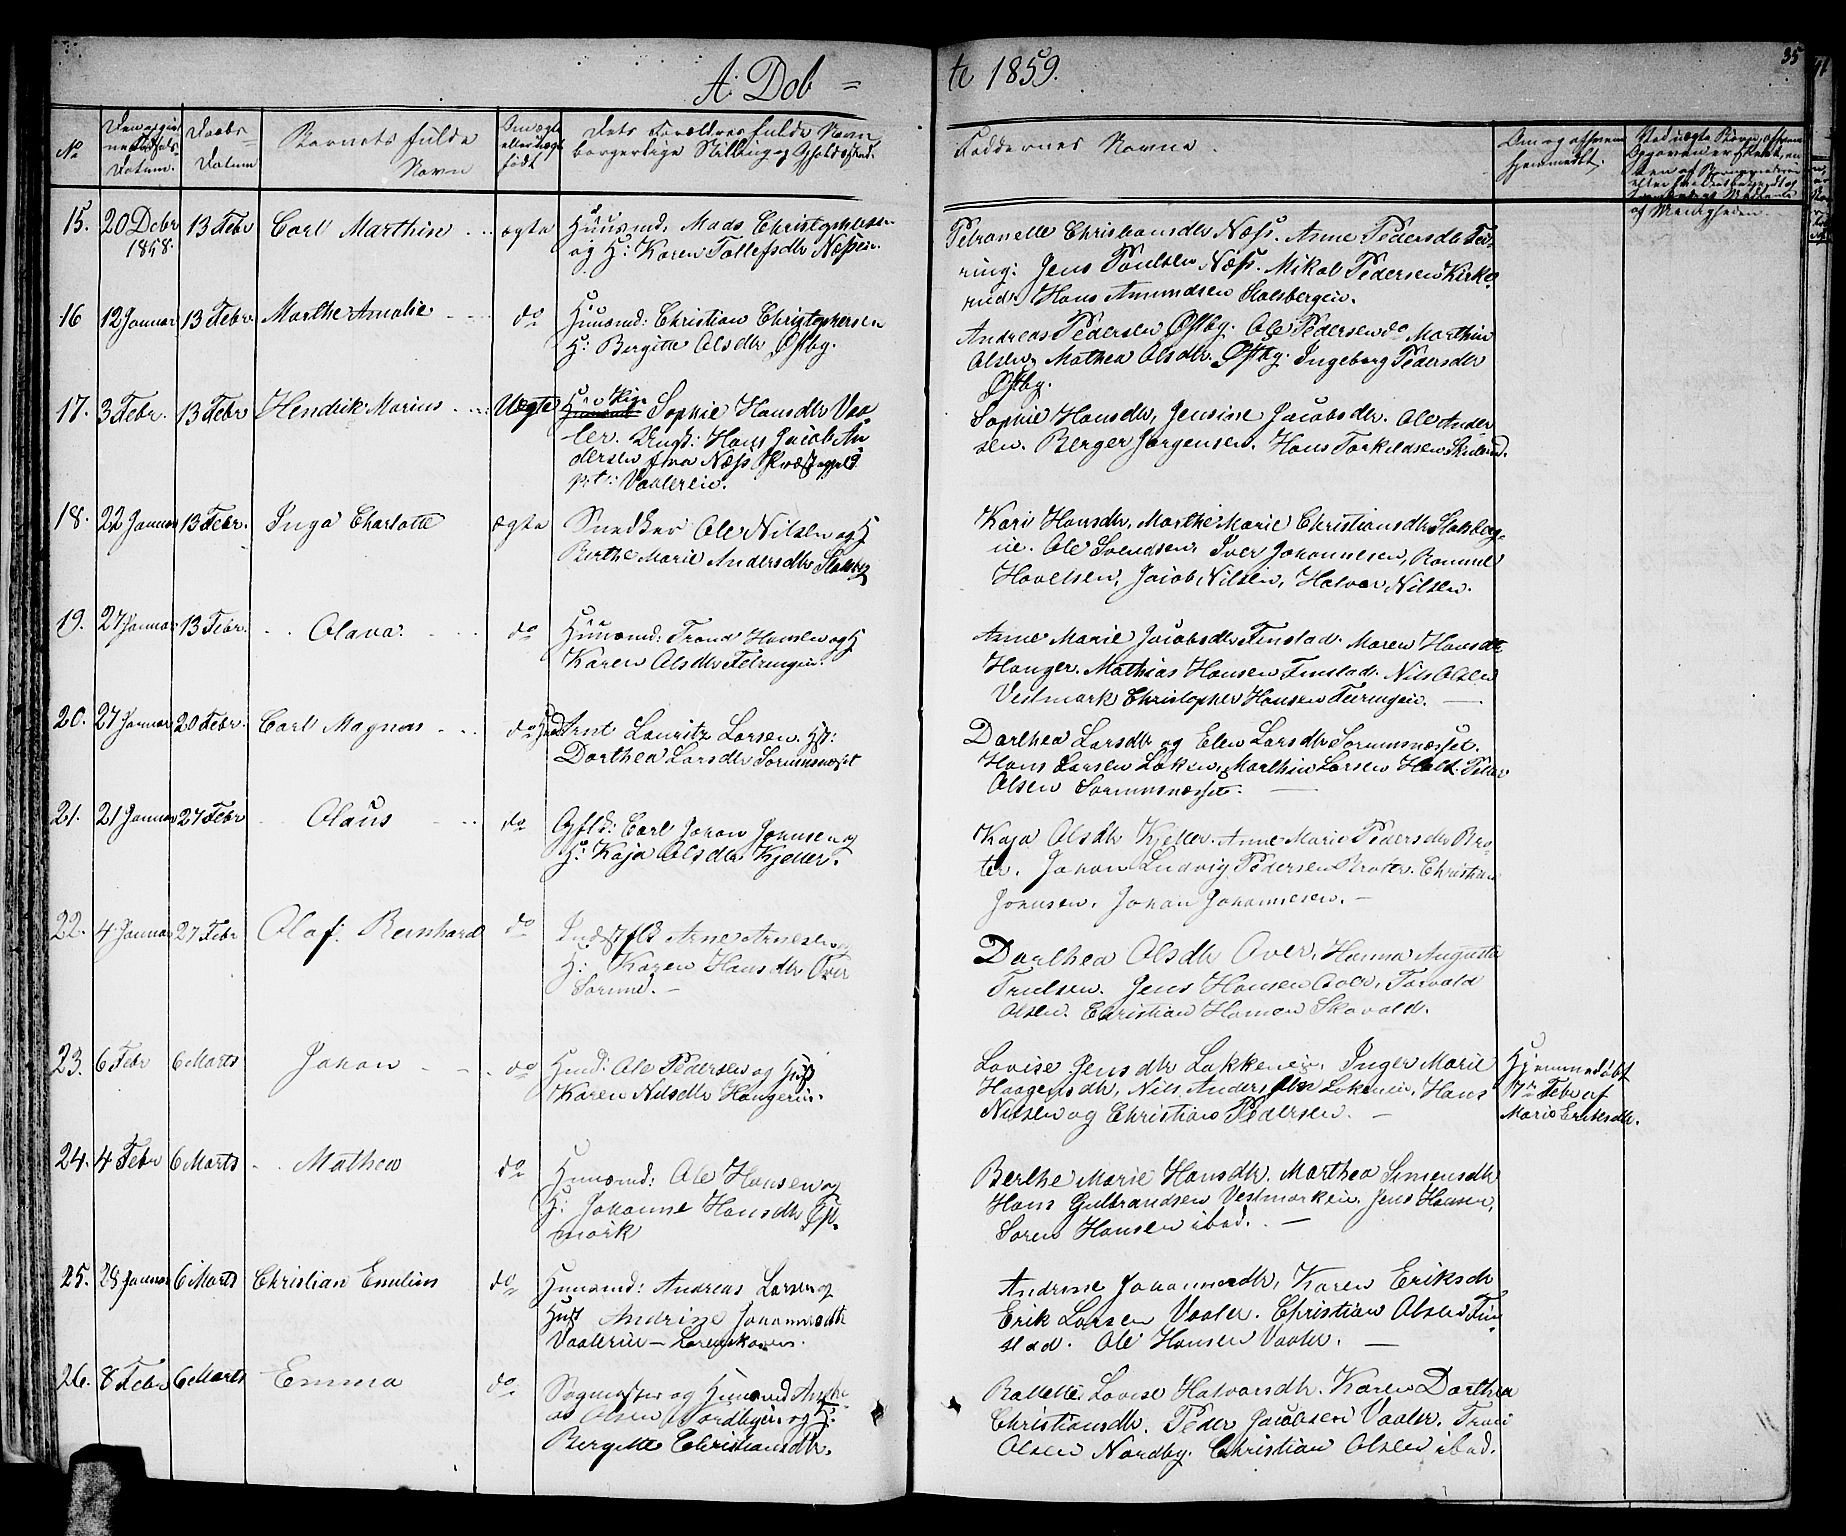 A. Døb = te 1859.
35
No
Datum.
Daabs
Datum
Barnets fulde
Navn
født
Dets Forældres fulde Navn
borgerlige Stilling og Opholdssted.
Faddernes Navne.
Om og af hvem
hjemmedøbt.
15. 20 Debr 13 Febr Carl Marthin ægte Huusmd. Mads Christophersen
1858.
og H: Karen Tollefsdtr Næsset.
Petronelle Christiansdtr Næss. Anne Pedersdtr Fed-
ring. Jens Poulsen Næss. Mikal Pedersen Kirke-
rud. Hans Amundsen Stalsbergeie.
16 12 Januar 13 Febr Marthe Amalie do Huusmd: Christian Christophersen
H: Bergitte Olsdtr Østby.
Andreas Pedersen Østby. Ole Pedersen do Marthin
Olsen, Mathea Olsdtr Østby. Ingeborg Pedersdtr
Østby.
17. 3 Febr. 13 Febr Hendrik Marius Uægte Pige Sophie Hansdtr Vaa
ler. Ungk: Hans Jacob An
dersen fra Næss Præstegjeld
pt: Vaalereie.
Sophie Hansdtr, Jensine Jacobsdtr. Ole Ander
sen. Berger Jørgensen. Hans Torkildsen
18. 22 Januar 13 Febr. Inga Charlotte ægte Snedker Ole Nilsen og H
Berthe Marie Andersdtr
Kari Hansdtr, Marthe Marie Christiansdtr Stalsberg-
eie. Ole Svendsen, Iver Johannesen,
Hovelsen, Jacob Nilsen, Halvor Nilsen.
19. 27 Januar 13 Febr. Olava. do Huusmd: Trond Hansen og H
Karen Olsdtr
Anne Marie Jacobsdtr Finstad. Maren Hansdtr
Hanger. Mathias Hansen Finstad. Nils Olsen
Vestmark Christopher Hansen
20. 27 Januar 20 Febr. Carl Magnus do Arnt Lauritz Larsen. Hst:
Dorthea Larsdtr Sørumsnæsset
Dorthea Larsdtr og Elen Larsdtr Sørumsnæsset.
Hans Larsen Løken, Marthin Larsen Peter
Olsen Sørumsnæsset.
21. 21 Januar 27 Febr Olaus do Gfld: Carl Johan Johnsen og
H: Kaja Olsdtr Kjeller.
Kaja Olsdtr Kjeller. Anne Marie Pedersdtr Bra-
ter. Johan Ludvig Pedersen Brater. Christian
Johnsen. Johan Johannesen.
22. 4 Januar 27 Febr Olaf Bernhard do Arne Arnesen og
H: Karen Hansdtr Over
Sørum.
Dorthea Olsdtr Over. Hanna Augusta
Trulsen. Jens Hansen Torvald
Olsen. Christian Hansen Skovald.
23. 6 Febr 6 Marts Johan do Hmd: Ole Pedersen og Hust
Karen Nilsdtr Hangerie.
Lovise Jensdtr Løkkeneie. Inger Marie
Haagensdtr, Nils Andersen Løkeneie, Hans
Nilsen og Christian Pedersen.
Hjemmedøbt
7de Febr af
Marie Eriksdtr.
24. 4 Febr 6 Marts Mathea do Huusmd: Ole Hansen og
H: Johanne Hansdtr
mork
Berthe Marie Hansdtr. Marthea Simensdtr
Hans Gulbrandsen Vestmarkeie. Jens Hansen,
Søren Hansen ibid.
25. 28 Januar 6 Marts Christian Emilius do Huusmd: Andreas Larsen og
Hust Andrine Johannesdtr
Vaalereie — Lørenskoven.
Andrine Johannesdtr, Karen Eriksdtr
Erik Larsen Vaaler. Christian Olsen Fin-
stad. Ole Hansen Vaaler.
26. 8 Febr 6 Marts Emma do Sagmester og Huusmd Andre-
as Olsen Nordbyeie og H:
Bergitte Christiansdtr.
Lovise Halvorsdtr. Karen Dorthea
Christiansdtr. Peder Jacobsen Vaaler.
Olsen Nordby. Christian Olsen ibid.